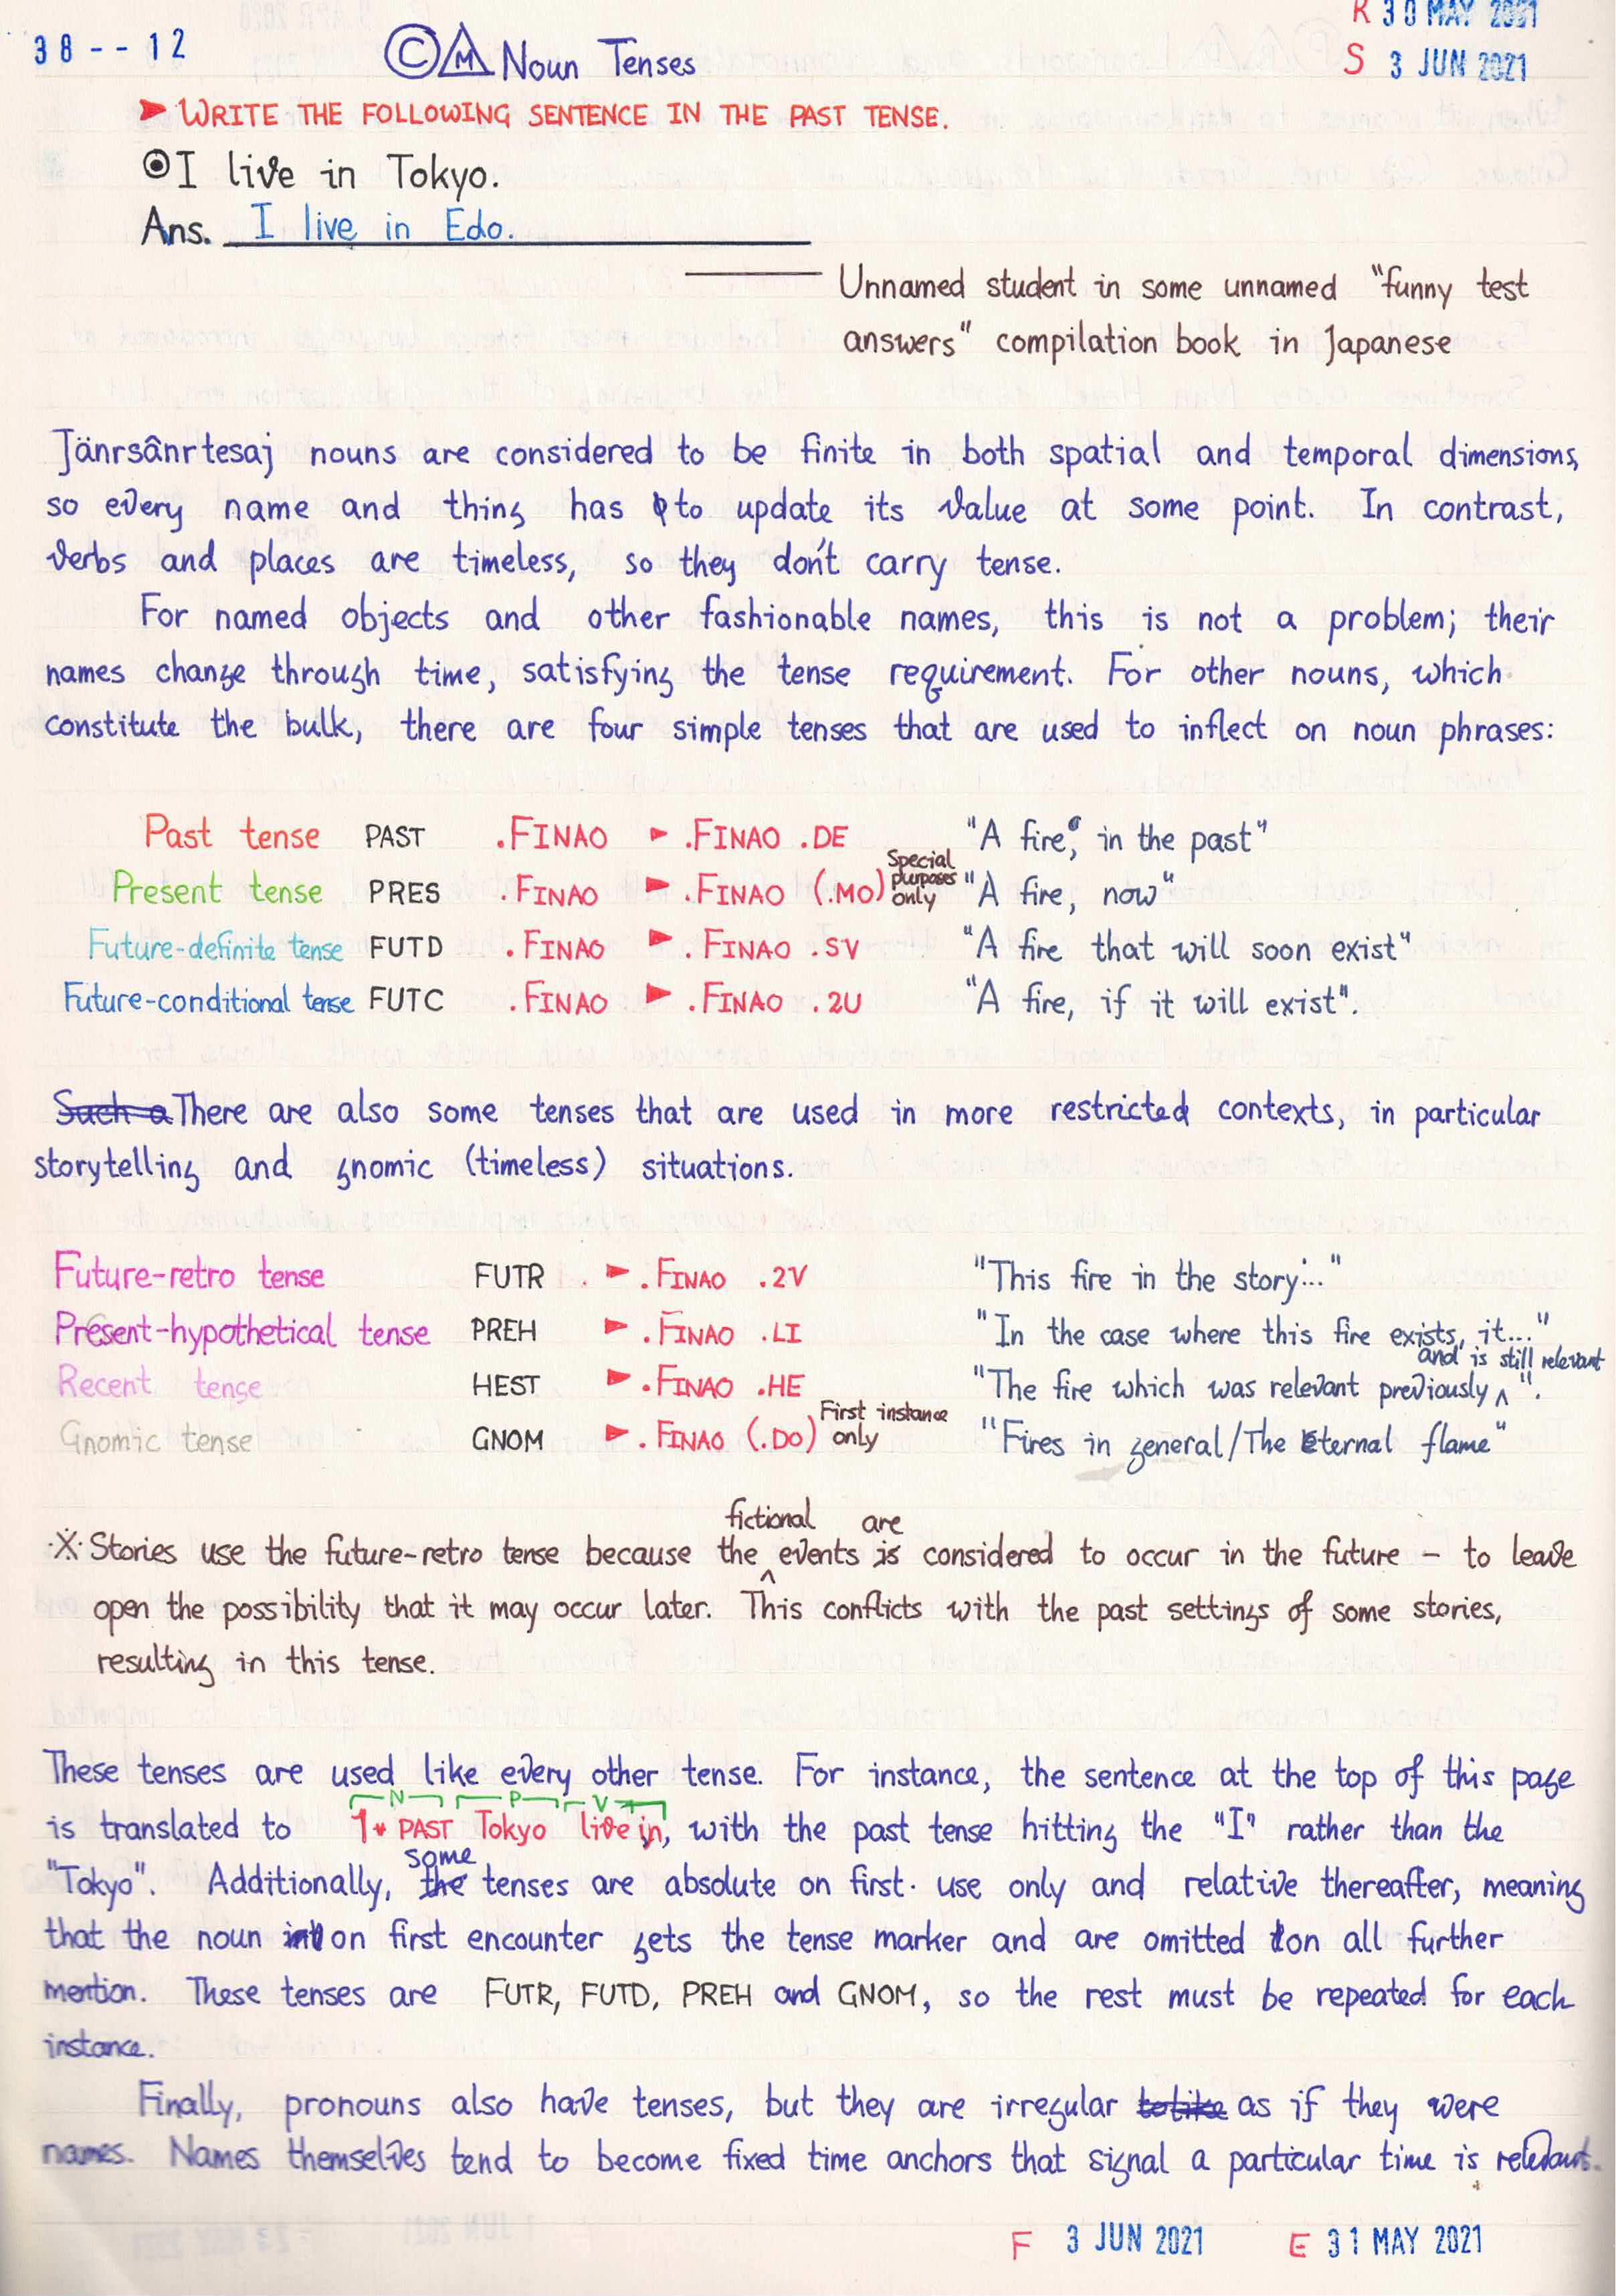 38--12
R 30 MAY 2021
Ⓒ M Noun Tenses
S 3 JUN 2021
► WRITE THE FOLLOWING SENTENCE IN THE PAST TENSE.
⊙ I live in Tokyo.
Ans. I live in Edo.
Unnamed student in some unnamed "funny test
answers" compilation book in Japanese
Jänrsânrtesaj nouns are considered to be finite in both spatial and temporal dimensions,
so every name and thing has to update its value at some point. In contrast,
verbs and places are timeless, so they don't carry tense.
For named objects and other fashionable names, this is not a problem; their
names change through time, satisfying the tense requirement. For other nouns, which
constitute the bulk, there are four simple tenses that are used to inflect on noun phrases:
Past tense PAST .FINAO ► .FINAO .DE "A fire, in the past"
Present tense PRES .FINAO ► .FINAO (.MO) Special purposes only "A fire, now"
Future-definite tense FUTD .FINAO ► .FINAO .SV "A fire that will soon exist"
Future-conditional tense FUTC .FINAO ► .FINAO .2U "A fire, if it will exist".
Such a There are also some tenses that are used in more restricted contexts, in particular
storytelling and gnomic (timeless) situations.
Future-retro tense FUTR ► .FINAO .2V "This fire in the story..."
Present-hypothetical tense PREH ► .FINAO .LI "In the case where this fire exists, it..."
Recent tense HEST ► .FINAO .HE "The fire which was relevant previously and is still relevant".
Gnomic tense GNOM ► .FINAO (.DO) First instance only "Fires in general/The Eternal flame"
※ Stories use the future-retro tense because the fictional events is are considered to occur in the future – to leave
open the possibility that it may occur later. This conflicts with the past settings of some stories,
resulting in this tense.
These tenses are used like every other tense. For instance, the sentence at the top of this page
N P V
is translated to 1* PAST Tokyo live in, with the past tense hitting the "I" rather than the
"Tokyo". Additionally, the some tenses are absolute on first use only and relative thereafter, meaning
that the noun on first encounter gets the tense marker and are omitted on all further
mention. These tenses are FUTR, FUTD, PREH and GNOM, so the rest must be repeated for each
instance.
Finally, pronouns also have tenses, but they are irregular as if they were
names. Names themselves tend to become fixed time anchors that signal a particular time is relevant.
F 3 JUN 2021 E 31 MAY 2021